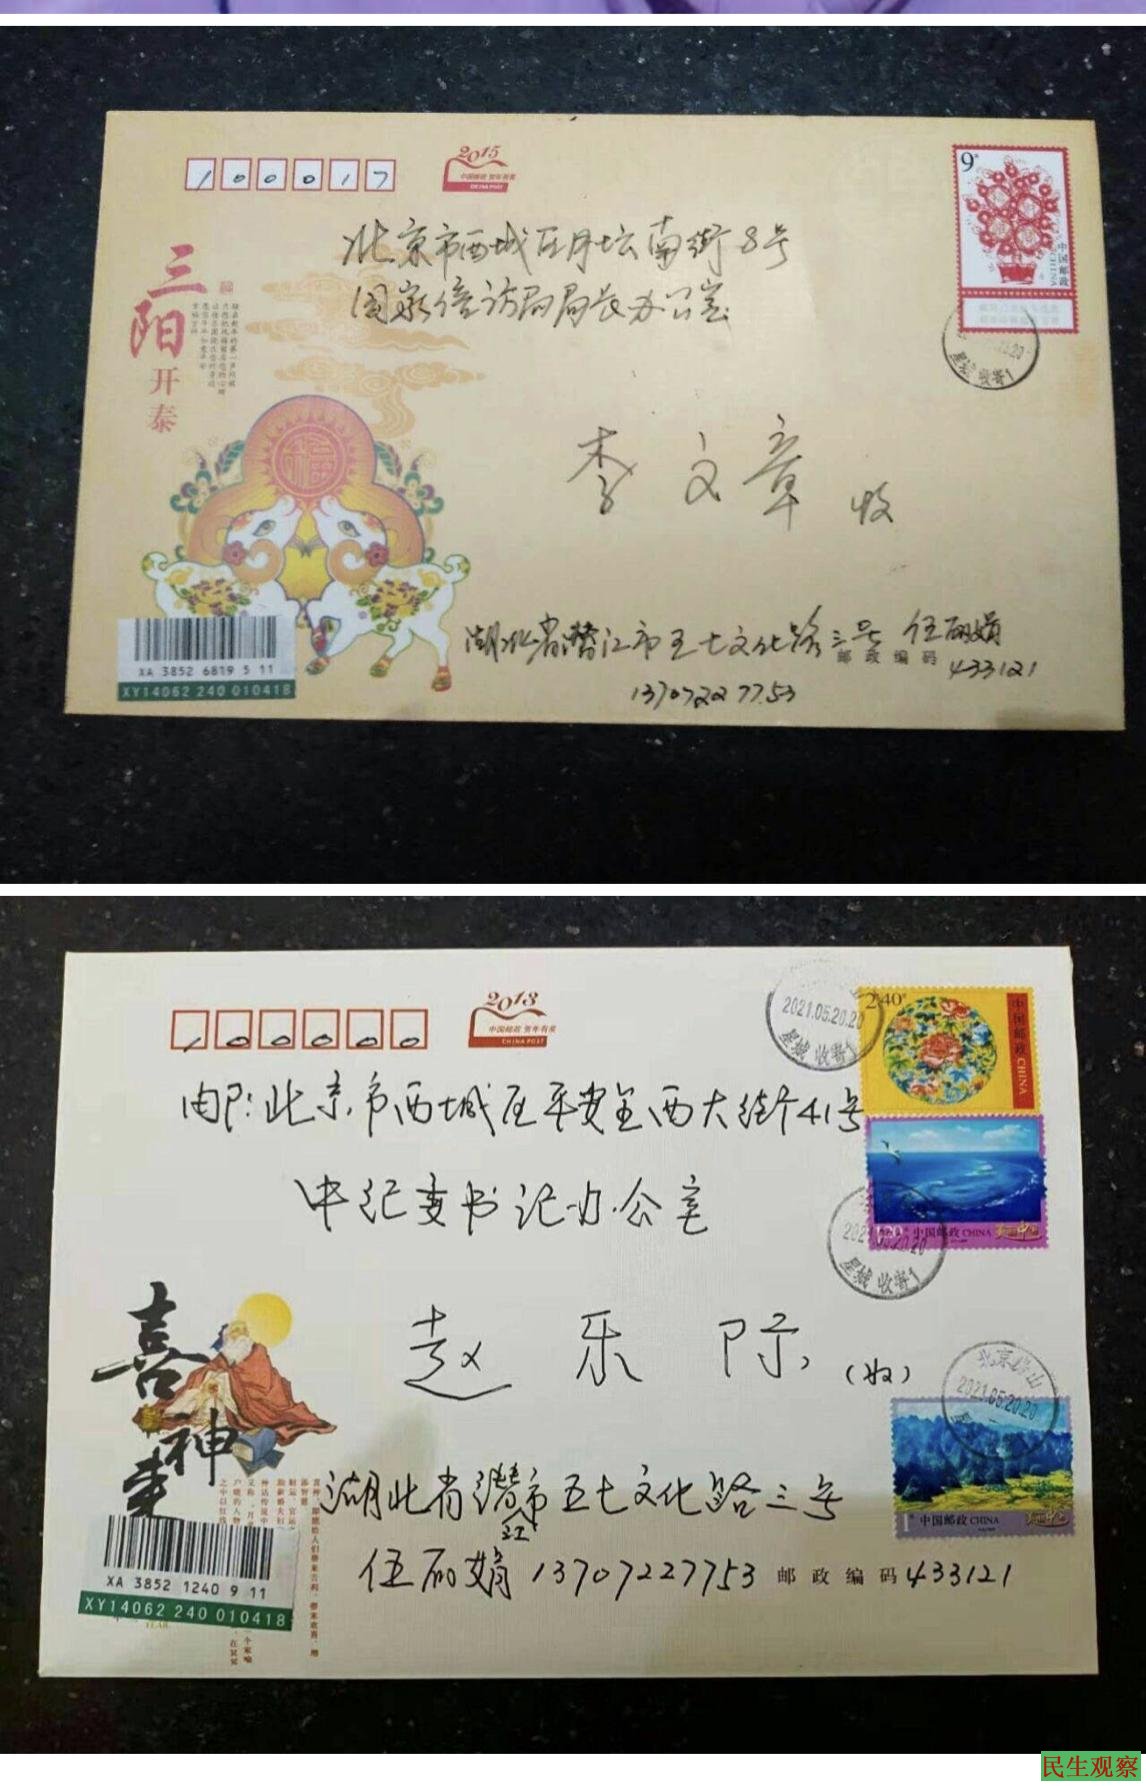 100017
2015
中国邮政 贺年有奖
CHINA POST
9元
中国邮政
CHINA
北京市西城区月坛南街8号
国家信访局局长办公室
三阳开泰
福
.20
星城 收寄1
李文章 收
湖北省潜江市五七文化路三号 伍丽娟
邮政编码 433121
13707227753
XA 3852 6819 5 11
XY14062 240 010418
100000
2013
中国邮政 贺年有奖
CHINA POST
2.40元
中国邮政 CHINA
2021.05.20.20
星城 收寄1
内户:北京市西城区平安里西大街41号
中纪委书记办公室
1.20 中国邮政 CHINA
20.20
星城 收寄1
赵乐际(收)
喜神来
北京房山
2021.05.20.20
1元 中国邮政 CHINA
湖北省潜江市五七文化路三号
伍丽娟 13707227753 邮政编码 433121
XA 3852 1240 9 11
XY14062 240 010418
民生观察